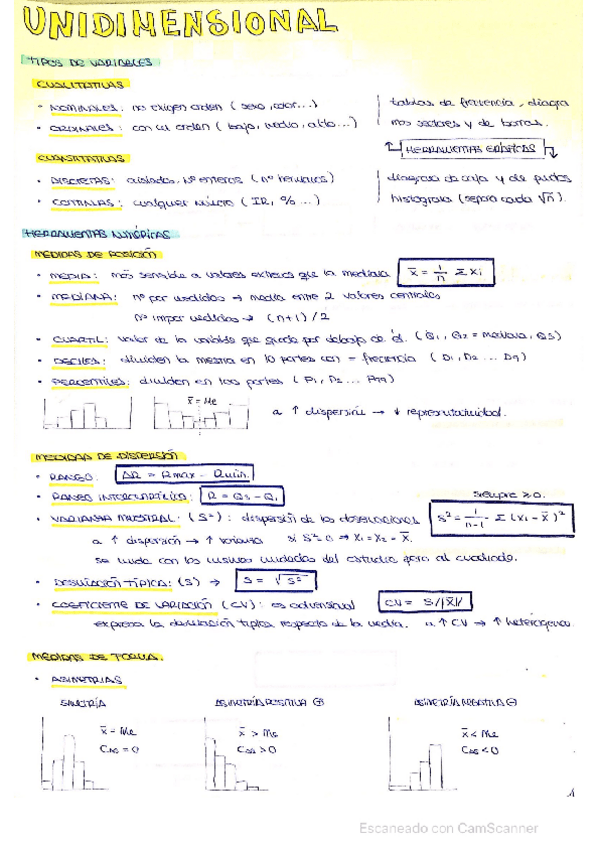 UNIDIMENSIONAL
TIPOS DE VARIABLES
CUALITATIVAS
• NOMINALES: no exigen orden (sexo, color...)
• ORDINALES: con un orden (bajo, medio, alto...)
tablas de frecuencia, diagra
mas sectores y de barras.
HERRAMIENTAS GRÁFICAS
CUANTITATIVAS
• DISCRETAS: aislados, nº enteros (nº hermanos)
• CONTINUAS: cualquier número (IR, % ...)
diagrama de caja y de puntos
histograma (separa cada √n).
HERRAMIENTAS NUMÉRICAS
MEDIDAS DE POSICIÓN
• MEDIA: más sensible a valores extremos que la mediana x̄ = 1/n Σ xi
• MEDIANA: nº par medidas → media entre 2 valores centrales
nº impar medidas → (n+1)/2
• CUARTIL: valor de la variable que queda por debajo de él. (Q1, Q2 = mediana, Q3)
• DECILES: dividen la muestra en 10 partes con = frecuencia (D1, D2 ... D9)
• PERCENTILES: dividen en 100 partes (P1, P2 ... P99)
x̄ = Me
a ↑ dispersión → ↓ representatividad.
MEDIDAS DE DISPERSIÓN
• RANGO: ΔR = Rmax - Rmin.
• RANGO INTERCUARTÍLICO: R = Q3 - Q1
siempre ≥ 0.
• VARIANZA MUESTRAL: (S²): dispersión de las observaciones S² = 1/n-1 Σ (xi - x̄)²
a ↑ dispersión → ↑ varianza si S² = 0 ⇒ x1 = x2 = x̄.
se mide con las mismas unidades del estudio pero al cuadrado.
• DESVIACIÓN TÍPICA: (S) → S = √S²
• COEFICIENTE DE VARIACIÓN (CV): es adimensional CV = S/|x̄|
expresa la desviación típica respecto de la media. ↑ CV → ↑ heterogenea
MEDIDAS DE FORMA.
• ASIMETRIAS
SIMETRÍA
x̄ = Me
CAS = 0
ASIMETRÍA POSITIVA ⊕
x̄ > Me
CAS > 0
ASIMETRÍA NEGATIVA ⊖
x̄ < Me
CAS < 0
1
Escaneado con CamScanner